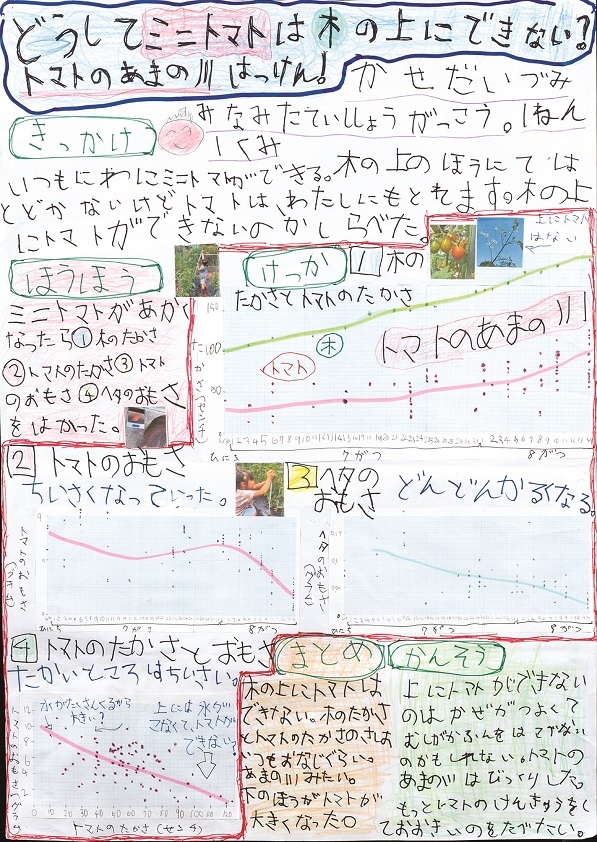 どうしてミニトマトは木の上にできない?
トマトのあまの川はっけん!
かせだいづみ
みなみたていしょうがっこう。1ねん
1くみ
きっかけ
いつもにわにミニトマトができる。木の上のほうにては
とどかないけどトマトは、わたしにもとれます。木の上
にトマトができないのかしらべた。
ほうほう
ミニトマトがあかく
なったら①木のたかさ
②トマトのたかさ③トマト
のおもさ④ヘタのおもさ
をはかった。
けっか
1 木の
たかさとトマトのたかさ
上にトマト
はない
トマトのあまの川
木
トマト
150
100
50
たかさ(センチ)
ひにち
7がつ
8がつ
2 トマトのおもさ
ちいさくなっていった。
トマトのおもさ(グラム)
ひにち
7がつ
8がつ
3 ヘタの
おもさ
どんどんかるくなる。
ヘタのおもさ(グラム)
ひにち
7がつ
8がつ
4 トマトのたかさとおもさ
たかいところはちいさい。
水がたいさんくるから
大きい?
上には水が
こなくて、トマトが
できない?
トマトのおもさ(グラム)
12
10
8
6
4
2
0 10 20 30 40 50 60 70 80 90 100 110 120
トマトのたかさ(センチ)
まとめ
木の上にトマトは
できない。木のたかさ
とトマトのたかさのさは
いつもおなじぐらい。
あまの川みたい。
下のほうがトマトが
大きくなった。
かんそう
上にトマトができない
のはかぜがつよくて
むしがかふんをはこべない
のかもしれない。トマトの
あまの川はびっくりした。
もっとトマトのけんきゅうをし
ておおきいのをたべたい。